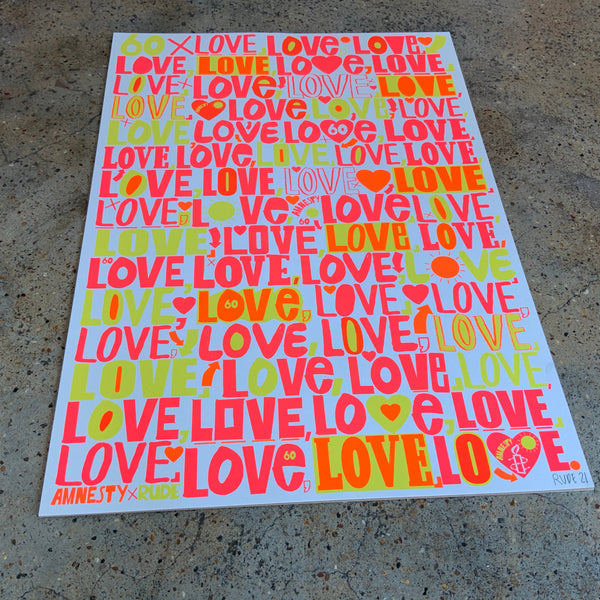 60 × LOVE, LOVE. LOVE,
LOVE, LOVE, LOVE, LOVE,
LOVE × LOVE, LOVE × LOVE,
LOVE, LOVE LOVE, LOVE,
LOVE, LOVE LOVE, 60 LOVE,
LOVE, LOVE, LOVE, LOVE, LOVE,
LOVE, LOVE, LOVE LOVE,
LOVE, LOVE AMNESTY 60 LOVE, LOVE,
LOVE, LOVE, LOVE, LOVE,
60 LOVE, LOVE, LOVE, LOVE,
LOVE, LOVE, 60 LOVE, LOVE,
LOVE, LOVE, LOVE, LOVE,
LOVE, LOVE, LOVE, LOVE,
LOVE, LOVE, LOVE, LOVE,
LOVE, LOVE, 60 LOVE, LOVE. AMNESTY
AMNESTY × RUDE
RUDE '21